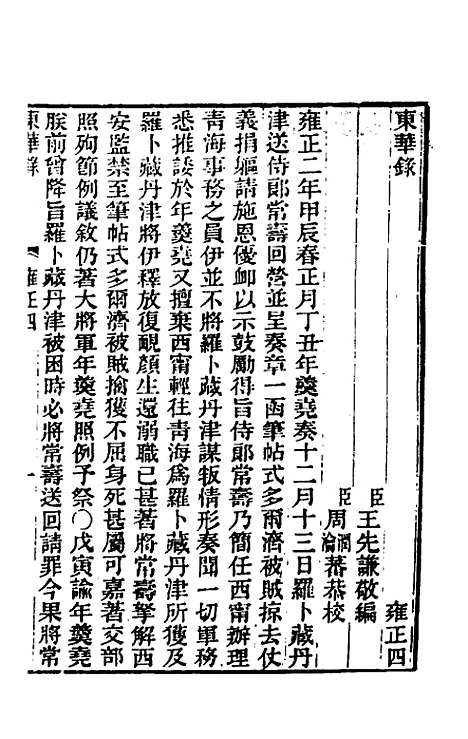 東華錄
雍正四
臣王先謙敬編
臣周潤蕃瀹蕃恭校
雍正二年甲辰春正月丁丑年羹堯奏十二月十三日羅卜藏丹
津送侍郎常壽回營並呈奏章一函筆帖式多爾濟被賊掠去仗
義捐軀請施恩優卹以示鼓勵得旨侍郎常壽乃簡任西甯辦理
靑海事務之員伊並不將羅卜藏丹津謀叛情形奏聞一切軍務
悉推諉於年羹堯又擅棄西甯輕往靑海爲羅卜藏丹津所獲及
羅卜藏丹津將伊釋放復靦顏生還溺職已甚著將常壽拏解西
安監禁至筆帖式多爾濟被賊擒獲不屈身死甚屬可嘉著交部
照殉節例議敘仍著大將軍年羹堯照例予祭○戊寅諭年羹堯
朕前曾降旨羅卜藏丹津被困時必將常壽送回請罪今果將常
東華錄
雍正四
一